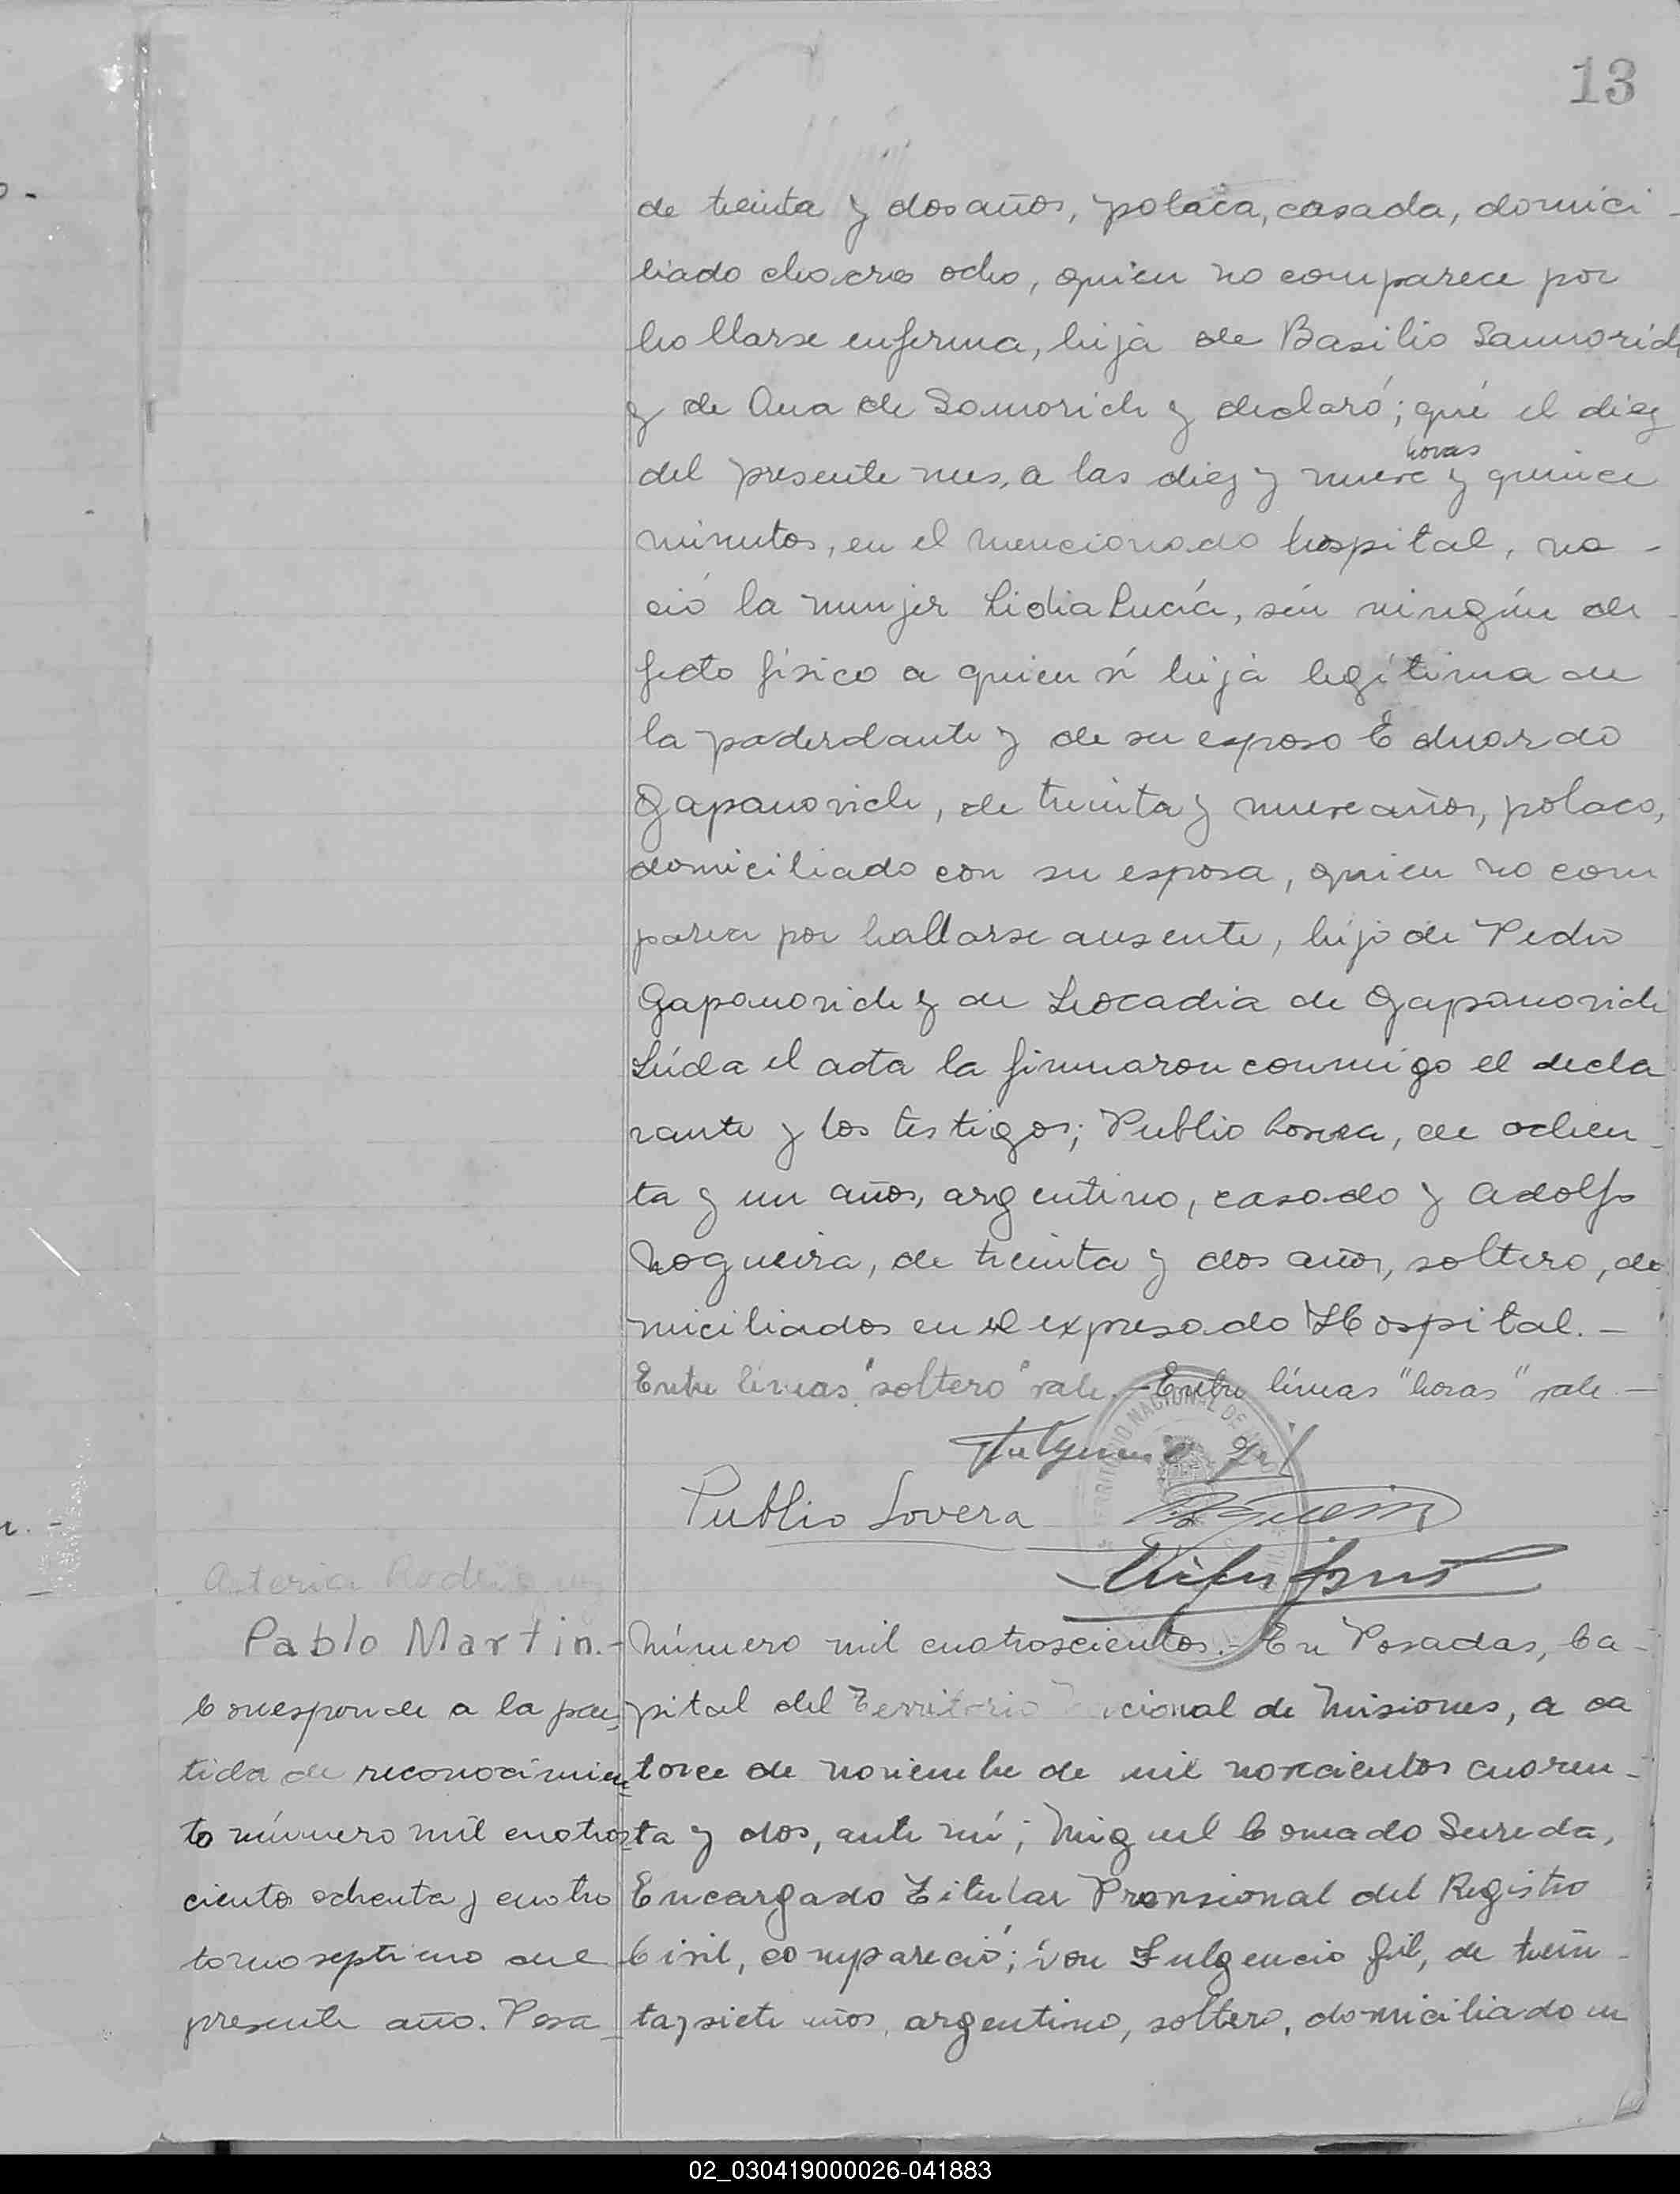 13
de treinta y dos años, polaca, casada, domici-
liado chacra ocho, quien no comparece por
hallarse enferma, hija de Basilio Samorich
y de Ana de Samorich y declaró; que el diez
horas
del presente mes, a las diez y nueve y quince
minutos, en el mencionado hospital, na-
ció la mujer Lidia Lucía, sin ningún de-
fecto físico a quien sí hija legítima de
la poderdante y de su esposo Eduardo
Gapanovich, de treinta y nueve años, polaco,
domiciliado con su esposa, quien no com
parece por hallarse ausente, hijo de Pedro
Gapanovich y de Leocadia de Gapanovich
Leída el acta la firmaron conmigo el decla
rante y los testigos; Publio Lovera, de ochen-
ta y un años, argentino, casado y Adolfo
Nogueira, de treinta y dos años, soltero, do
miciliados en el expresado Hospital.-
Entre líneas "soltero" vale.-Entre líneas "horas" vale.-
Fulgencio Gil
Publio Lovera
Asteria Rodriguez
Pablo Martin.-
Corresponde a la par-
tida de reconocimien-
to número mil cuatros-
cientos ochenta y cuatro
tomo septimo del
presente año. Posa-
Número mil cuatroscientos.-En Posadas, Ca-
pital del Territorio Nacional de Misiones, a ca
torce de noviembre de mil novecientos cuaren-
ta y dos, ante mí; Miguel Conrado Sureda,
Encargado Titular Provisional del Registro
Civil, compareció; don Fulgencio Gil, de trein-
ta y siete años, argentino, soltero, domiciliado en
02_030419000026-041883